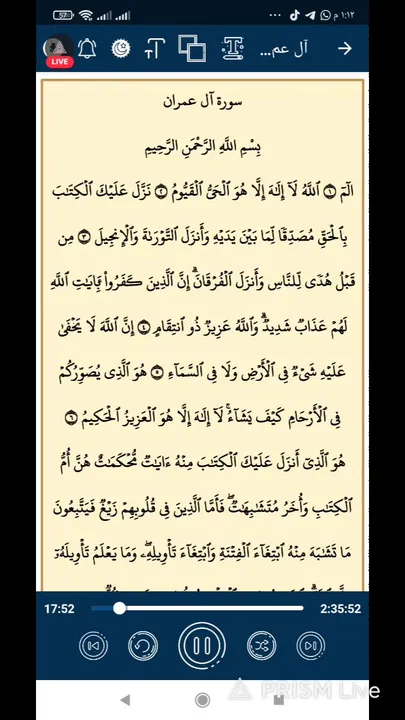 57 ١:١٢ م
آل عم...
LIVE
سورة آل عمران
بِسْمِ اللَّهِ الرَّحْمَنِ الرَّحِيمِ
الٓمٓ ۝١ ٱللَّهُ لَآ إِلَٰهَ إِلَّا هُوَ ٱلْحَىُّ ٱلْقَيُّومُ ۝٢ نَزَّلَ عَلَيْكَ ٱلْكِتَٰبَ
بِٱلْحَقِّ مُصَدِّقًا لِّمَا بَيْنَ يَدَيْهِ وَأَنزَلَ ٱلتَّوْرَىٰةَ وَٱلْإِنجِيلَ ۝٣ مِن
قَبْلُ هُدًى لِّلنَّاسِ وَأَنزَلَ ٱلْفُرْقَانَ ۗ إِنَّ ٱلَّذِينَ كَفَرُوا۟ بِـَٔايَٰتِ ٱللَّهِ
لَهُمْ عَذَابٌ شَدِيدٌ ۗ وَٱللَّهُ عَزِيزٌ ذُو ٱنتِقَامٍ ۝٤ إِنَّ ٱللَّهَ لَا يَخْفَىٰ
عَلَيْهِ شَىْءٌ فِى ٱلْأَرْضِ وَلَا فِى ٱلسَّمَآءِ ۝٥ هُوَ ٱلَّذِى يُصَوِّرُكُمْ
فِى ٱلْأَرْحَامِ كَيْفَ يَشَآءُ ۚ لَآ إِلَٰهَ إِلَّا هُوَ ٱلْعَزِيزُ ٱلْحَكِيمُ ۝٦
هُوَ ٱلَّذِىٓ أَنزَلَ عَلَيْكَ ٱلْكِتَٰبَ مِنْهُ ءَايَٰتٌ مُّحْكَمَٰتٌ هُنَّ أُمُّ
ٱلْكِتَٰبِ وَأُخَرُ مُتَشَٰبِهَٰتٌ ۖ فَأَمَّا ٱلَّذِينَ فِى قُلُوبِهِمْ زَيْغٌ فَيَتَّبِعُونَ
مَا تَشَٰبَهَ مِنْهُ ٱبْتِغَآءَ ٱلْفِتْنَةِ وَٱبْتِغَآءَ تَأْوِيلِهِۦ ۗ وَمَا يَعْلَمُ تَأْوِيلَهُۥٓ
17:52 2:35:52
PRISM Live